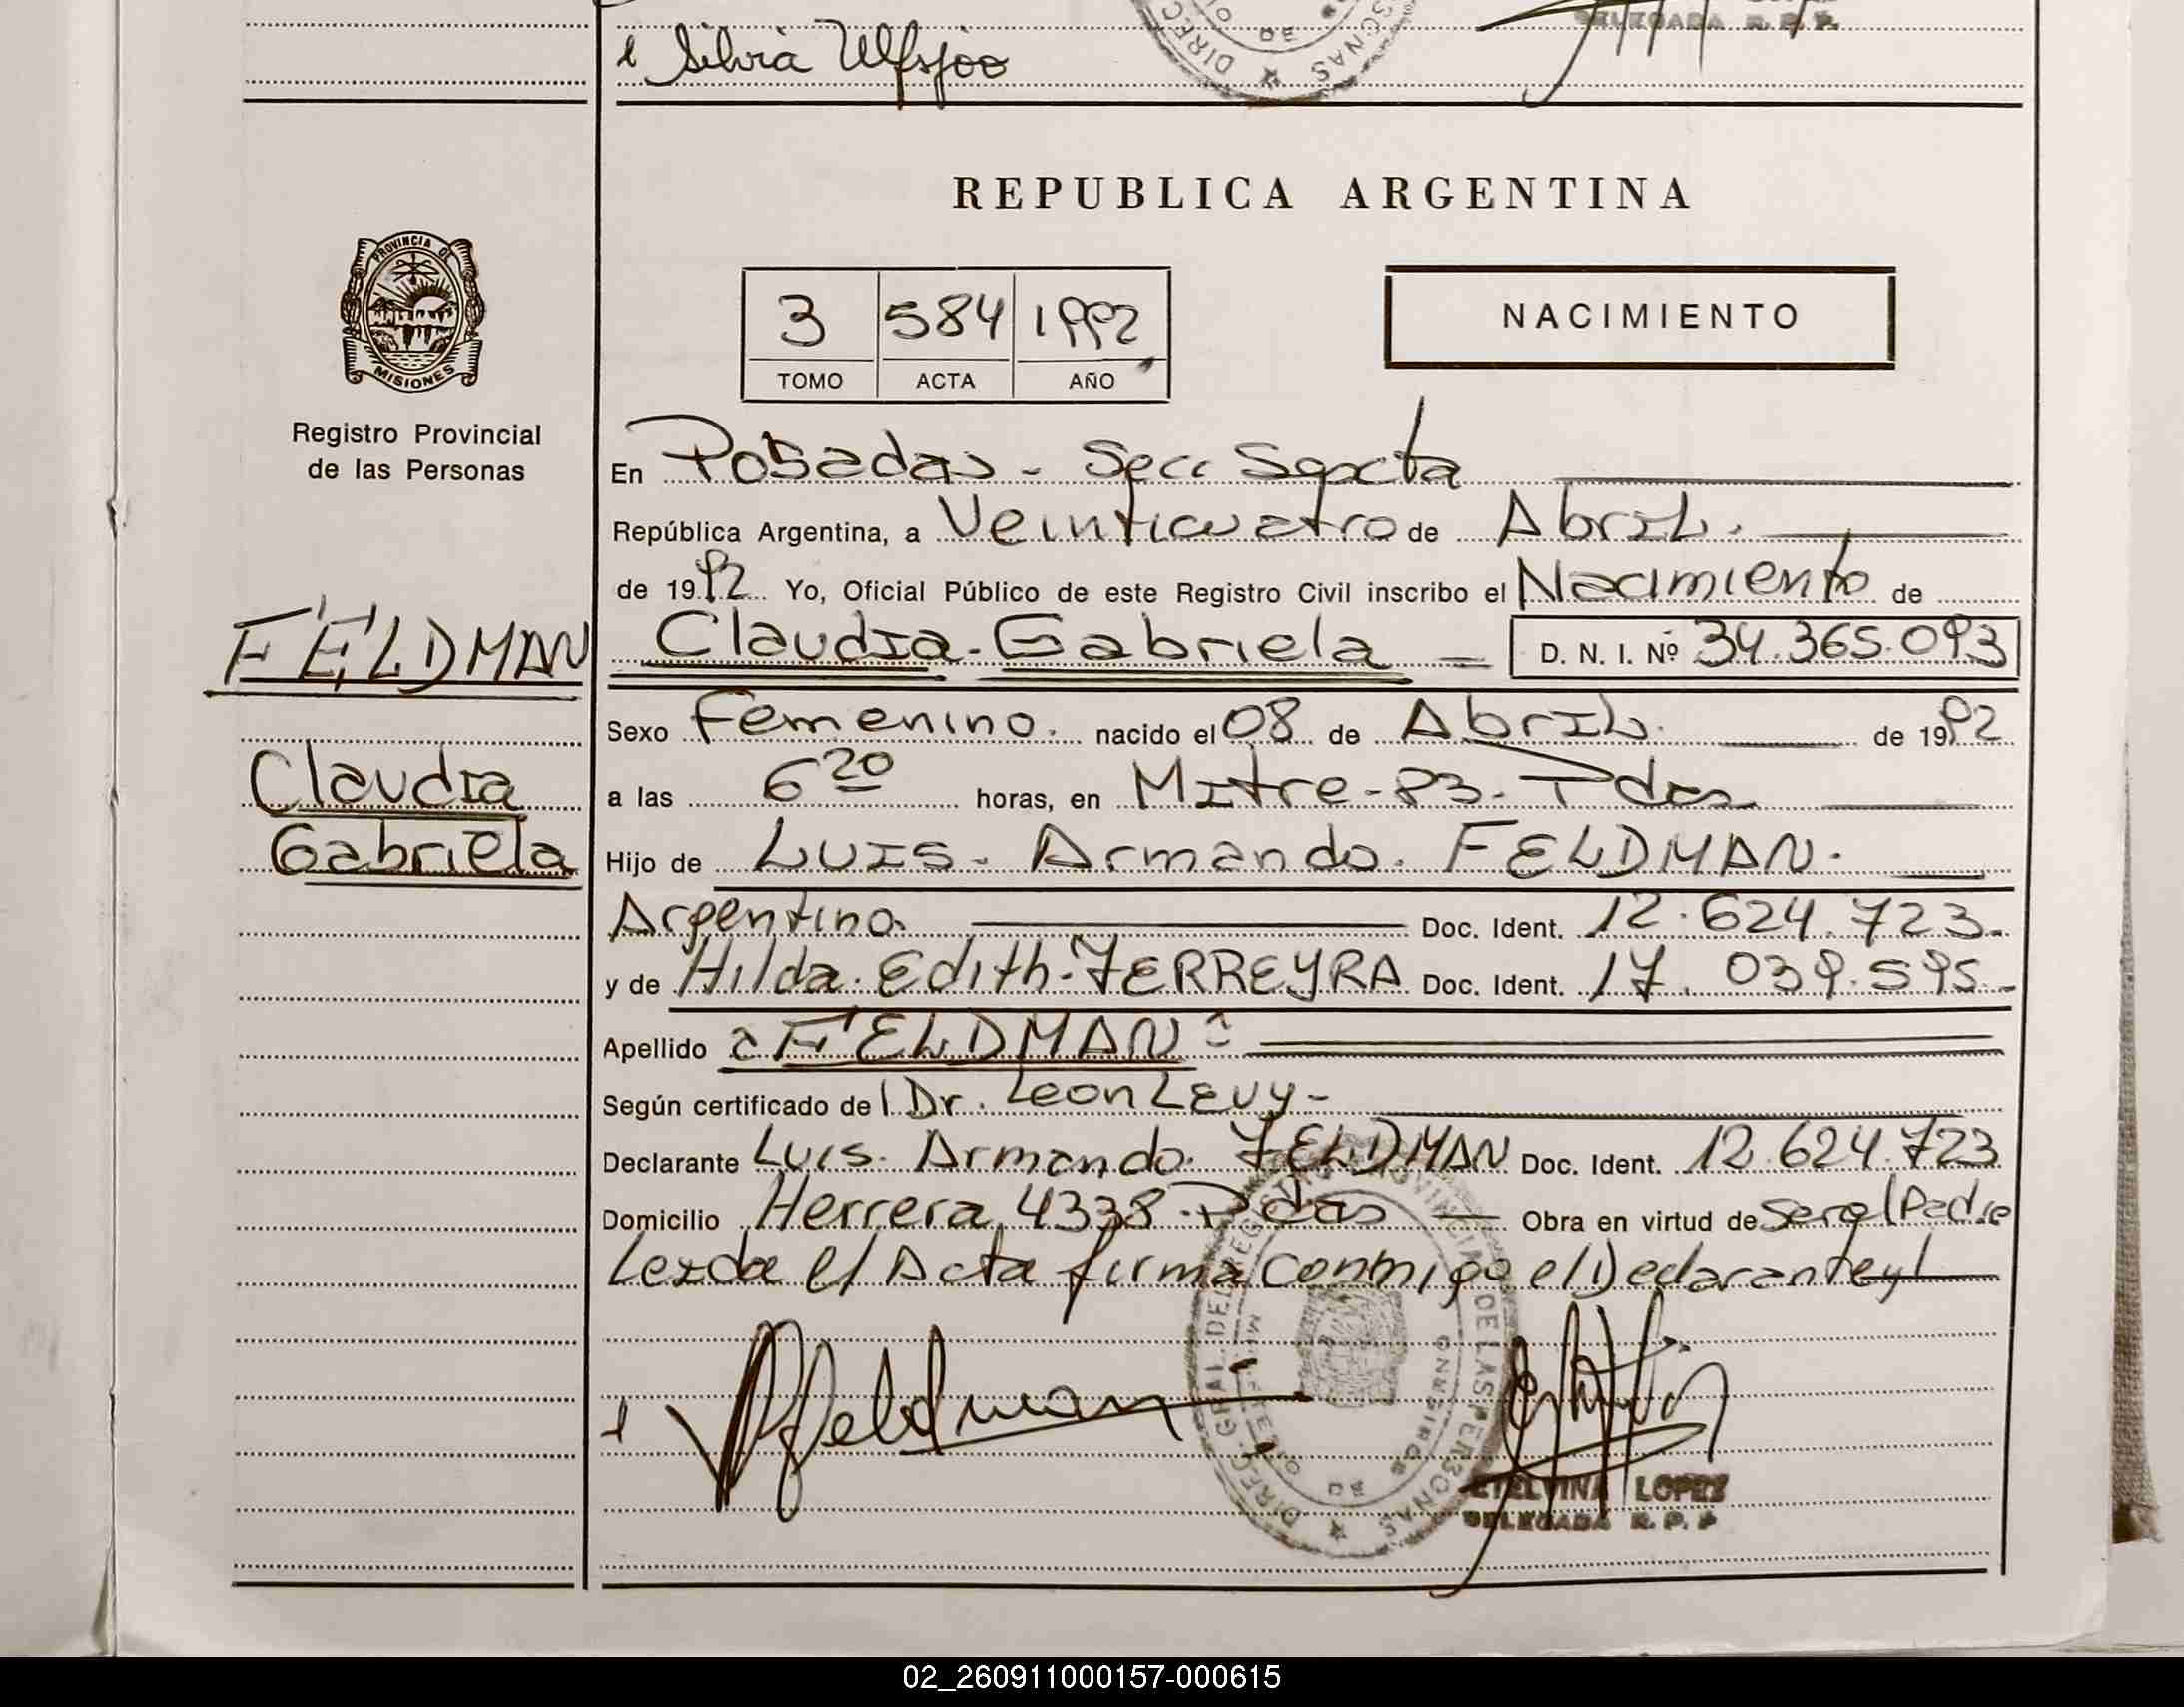 Silvia
DELEGADA R. P. P.
REPUBLICA ARGENTINA
PROVINCIA DE
MISIONES
Registro Provincial
de las Personas
3 584 1992
TOMO ACTA AÑO
NACIMIENTO
En Posadas - Secc Sexta
República Argentina, a Veinticuatro de Abril.
de 1992 Yo, Oficial Público de este Registro Civil inscribo el Nacimiento de
FELDMAN
Claudia Gabriela
Claudia - Gabriela D. N. I. Nº 34.365.093
Sexo Femenino. nacido el 08 de Abril. de 1992
a las 6 20 horas, en Mitre - 93 - Pdas
Hijo de Luis - Armando. FELDMAN.
Argentino. Doc. Ident. 12.624.723.
y de Hilda. Edith - FERREYRA Doc. Ident. 17.039.595-
Apellido = FELDMAN =
Según certificado del Dr. Leon Levy -
Declarante Luis. Armando. FELDMAN Doc. Ident. 12.624.723
Domicilio Herrera 4338 - Pdas Obra en virtud de ser el Padre
Leida el Acta firma conmigo el Declarante
Feldman
DIREC. GRAL. DEL REGISTRO PROVINCIAL DE LAS PERSONAS
ETELVINA LOPEZ
DELEGADA R. P. P
02_260911000157-000615